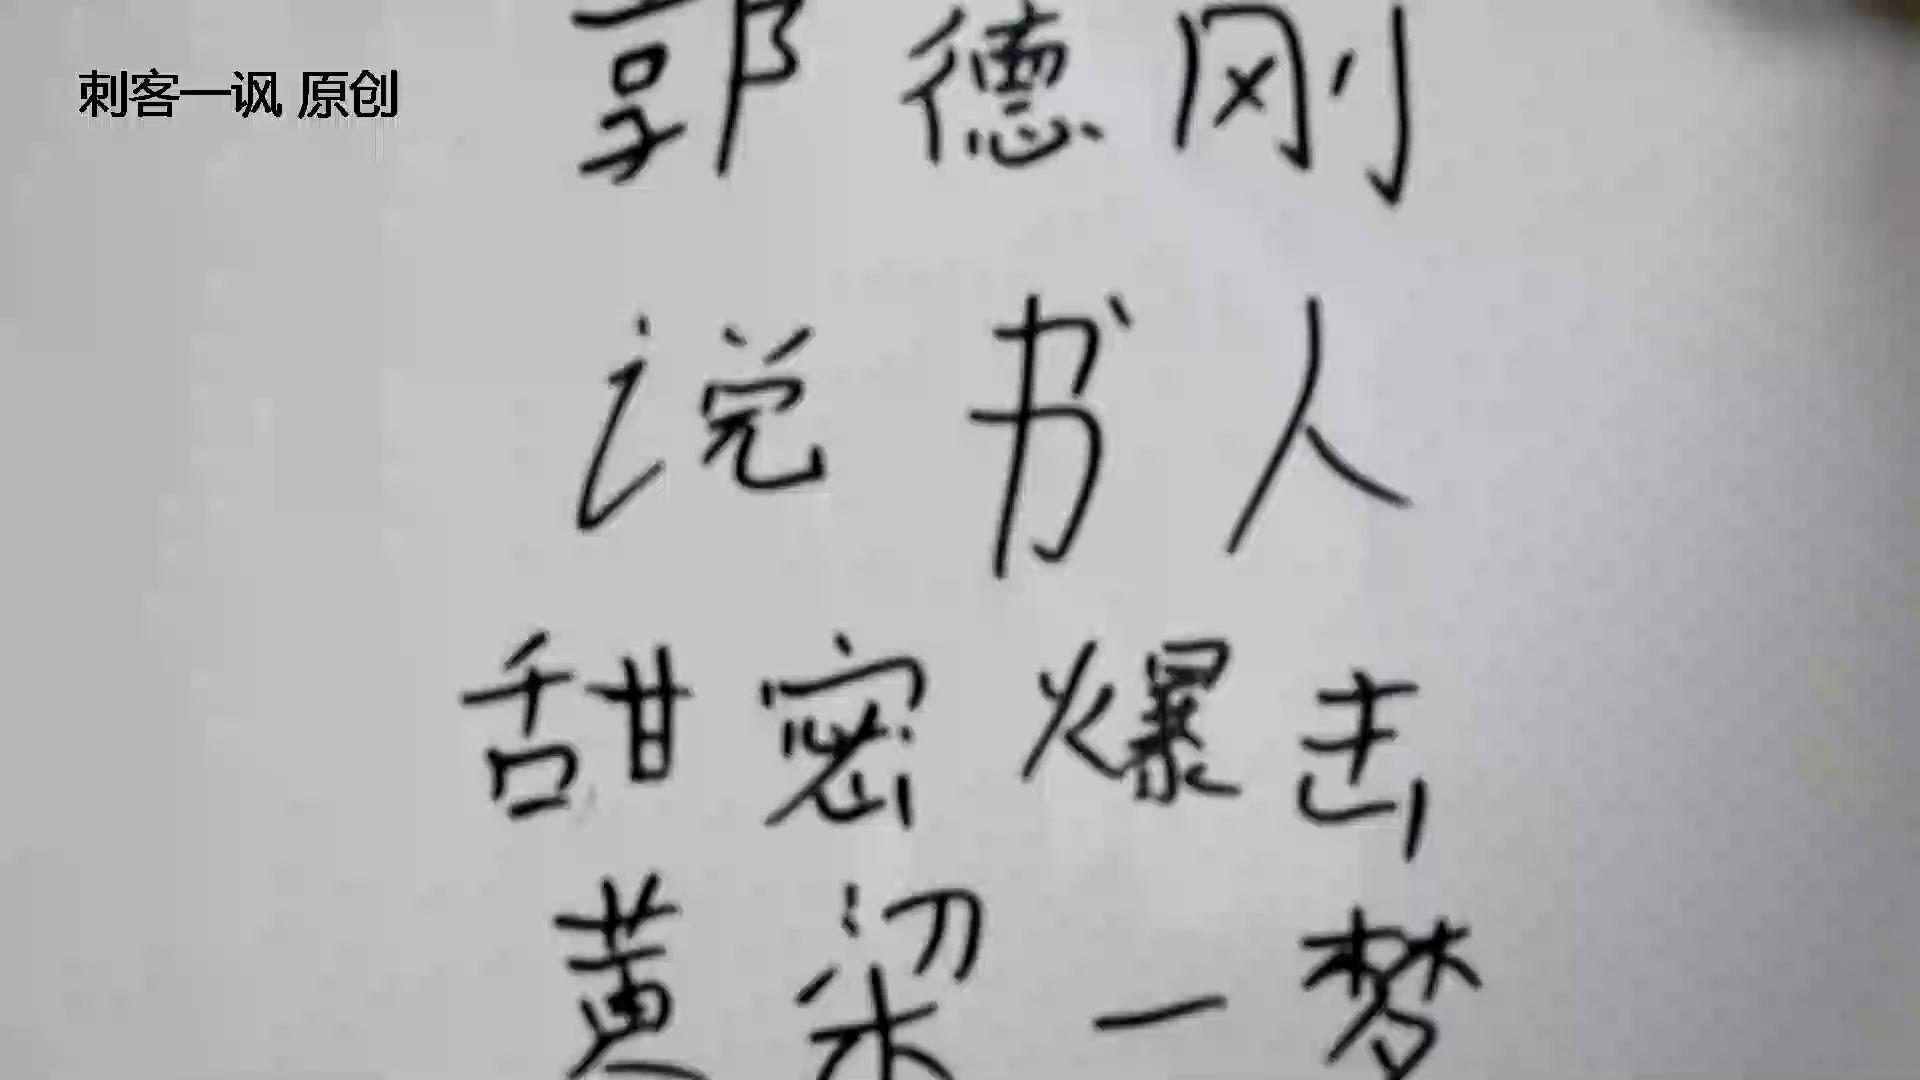 刺客一讽 原创
郭德刚
说书人
甜密爆击
黄梁一梦